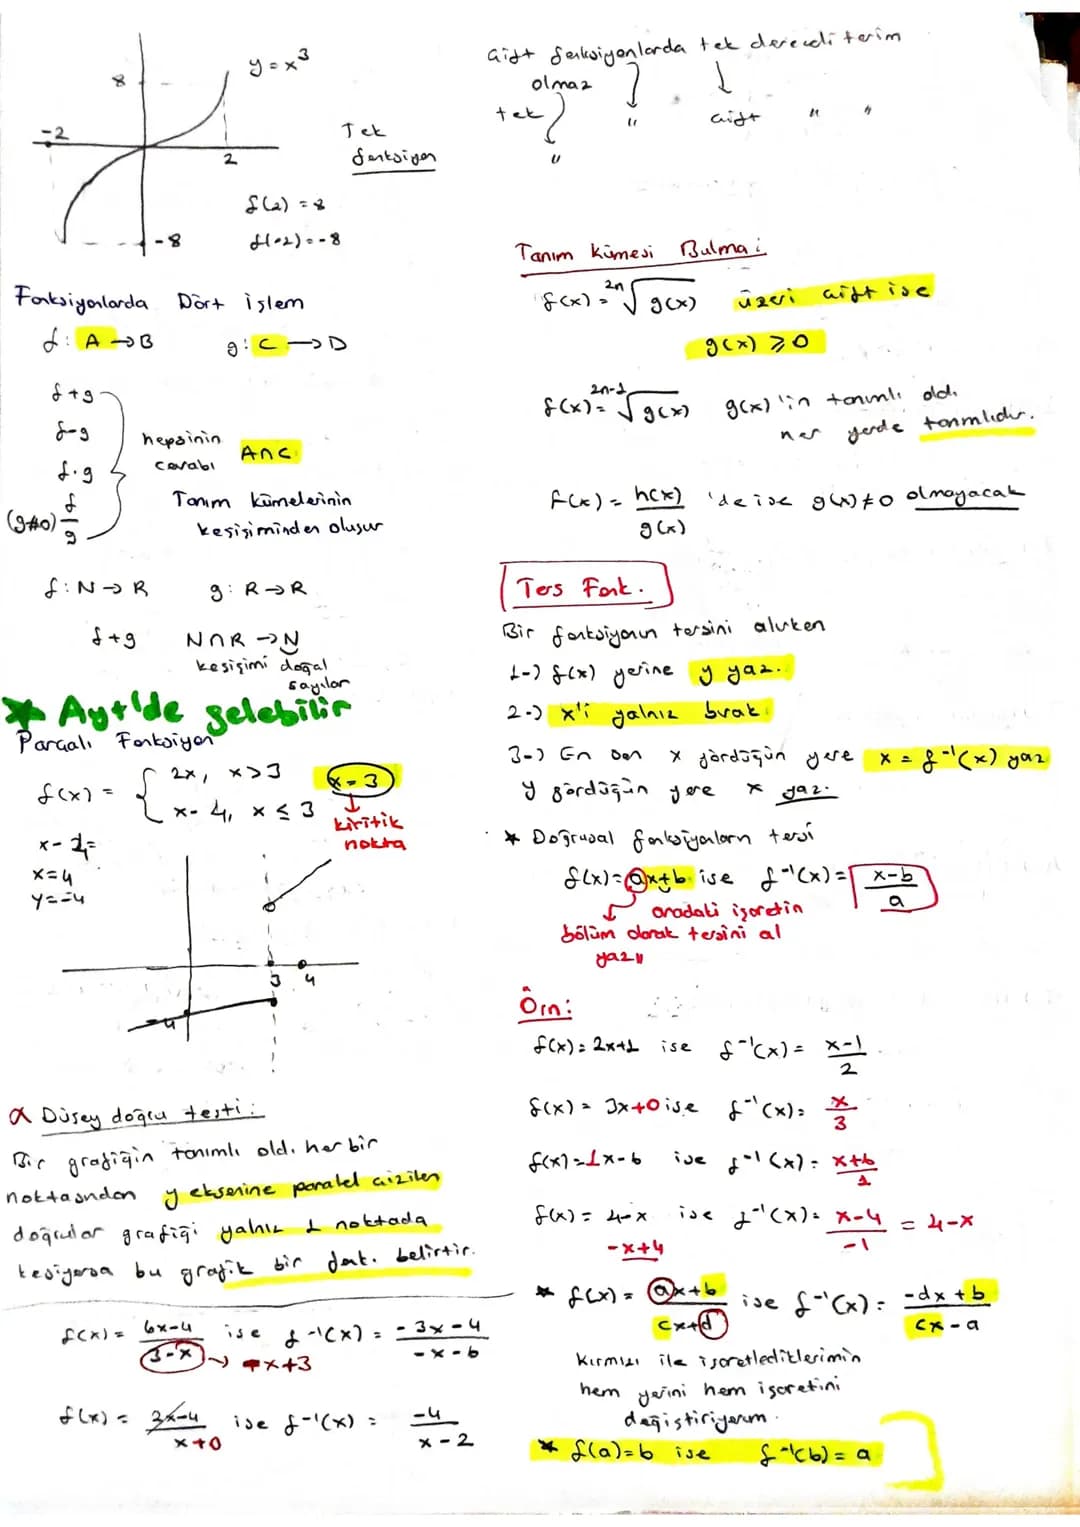 y = x³
8
-2
2
-8
Tek
fonksiyon
f(2) = 8
f(-2) = -8
Fonksiyonlarda Dört işlem
f: A → B g: C → D
f+g
f-g
f.g
(g≠0) f/g
hepsinin
cevabı A∩C
Tanım kümelerinin
kesişiminden oluşur
f: N → R g: R → R
f+g N∩R → N
kesişimi doğal
sayılar
★ Ayt'de gelebilir
Parçalı Fonksiyon
f(x) = { 2x, x>3
x-4, x ≤ 3
x=3
kiritik
nokta
x=4
y=-4
3 4
-4
Düşey doğru testi:
Bir grafiğin tanımlı old. her bir
noktasından y eksenine paralel çizilen
doğrular grafiği yalnız 1 noktada
kesiyorsa bu grafik bir fonk. belirtir.
f(x) = 6x-4 / 3-x ise f⁻¹(x) = -3x-4 / -x-6
-x+3
f(x) = 2x-4 / x+0 ise f⁻¹(x) = -4 / x-2
Çift fonksiyonlarda tek dereceli terim
olmaz
tek " çift " "
"
Tanım Kümesi Bulma:
f(x) = ²ⁿ√g(x) üzeri çift ise
g(x) ≥ 0
f(x) = ²ⁿ⁻¹√g(x) g(x)'in tanımlı old.
her yerde tanımlıdır.
f(x) = h(x) / g(x) 'de ise g(x)≠0 olmayacak
Ters Fonk.
Bir fonksiyonun tersini alırken
1-) f(x) yerine y yaz.
2-) x'i yalnız bırak.
3-) En son x gördüğün yere x = f⁻¹(x) yaz
y gördüğün yere x yaz.
★ Doğrusal fonksiyonların tersi
f(x) = ax+b ise f⁻¹(x) = x-b / a
aradaki işaretin
bölüm olarak tersini al
yaz
Örn:
f(x) = 2x+1 ise f⁻¹(x) = x-1 / 2
f(x) = 3x+0 ise f⁻¹(x) = x / 3
f(x) = 1x-6 ise f⁻¹(x) = x+6 / 1
f(x) = 4-x ise f⁻¹(x) = x-4 / -1 = 4-x
-x+4
★ f(x) = ax+b / cx+d ise f⁻¹(x) = -dx+b / cx-a
Kırmızı ile işaretlediklerimin
hem yerini hem işaretini
değiştiriyorum.
★ f(a)=b ise f⁻¹(b) = a